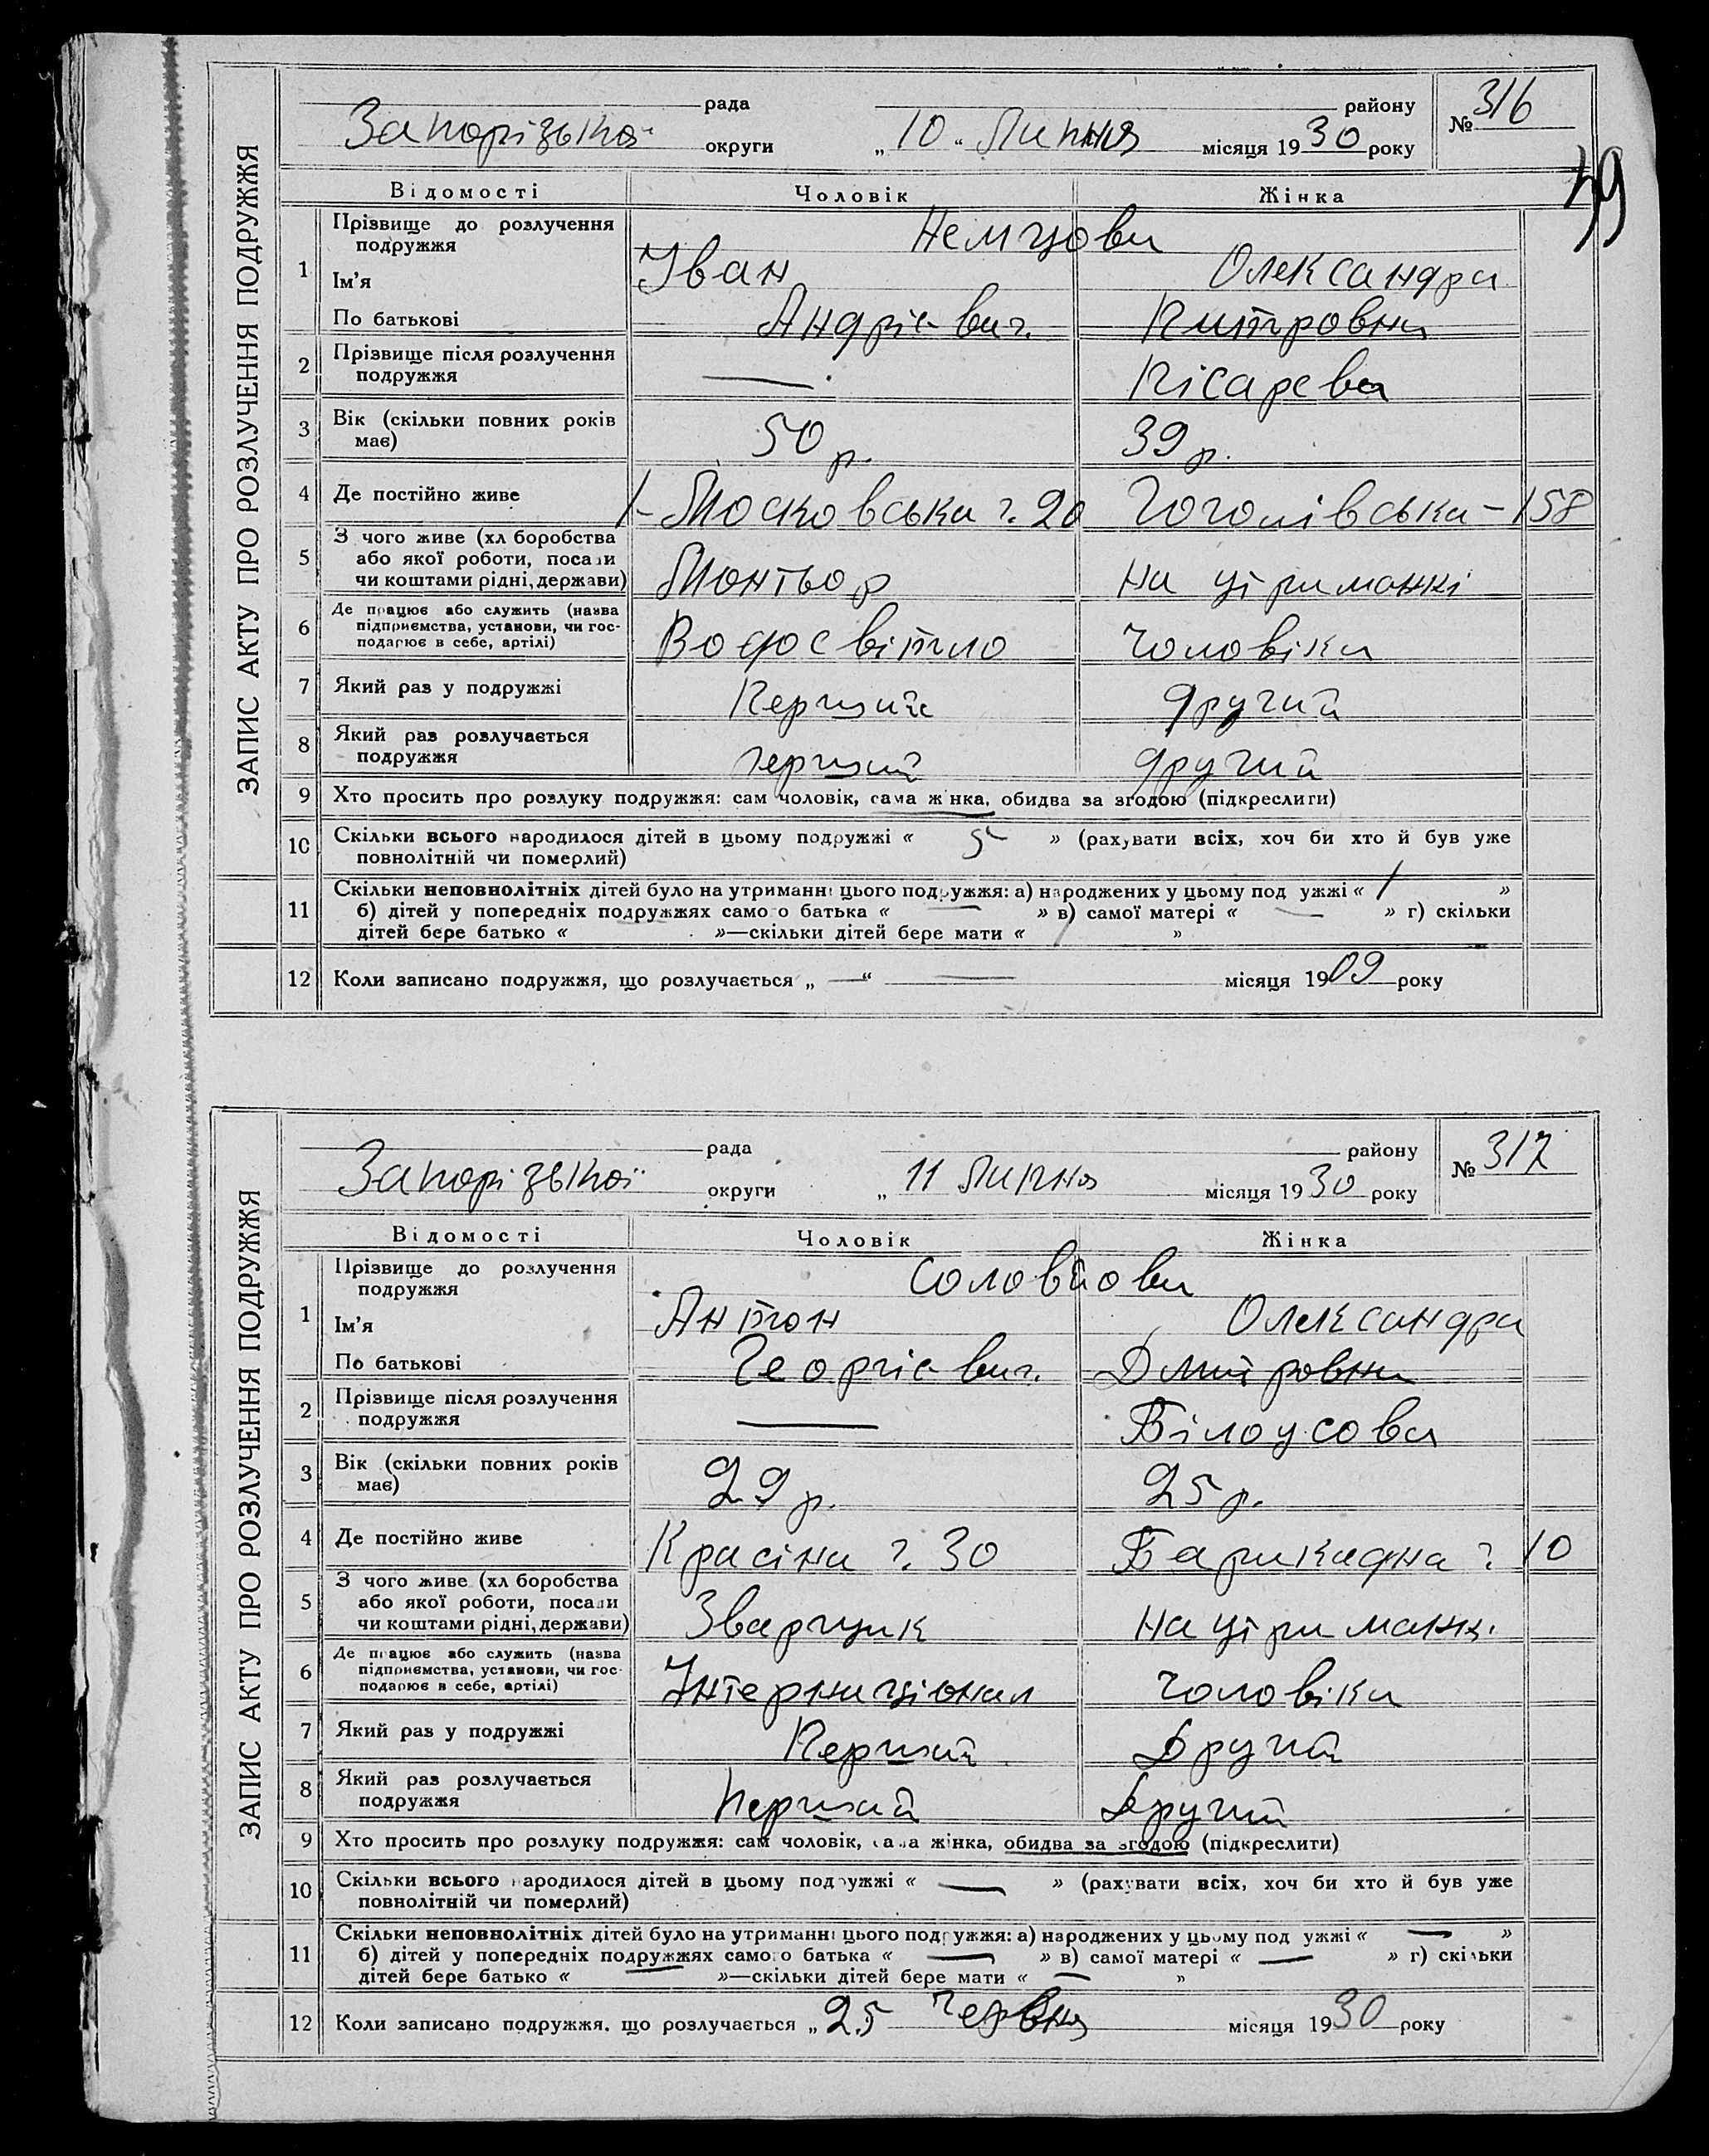 ЗАПИС АКТУ ПРО РОЗЛУЧЕННЯ ПОДРУЖЖЯ
рада району № 316
Запорізької округи „10“ Липня місяця 1930 року
79
Відомості Чоловік Жінка
1 Прізвище до розлучення подружжя Немцови
Ім’я Іван Олександра
По батькові Андрієвич
2 Прізвище після розлучення подружжя — Пісарева
3 Вік (скільки повних років має) 50 р. 39 р.
4 Де постійно живе Московська ч. 20 Гоголівська – 158
5 З чого живе (хліборобства
або якої роботи, посади
чи коштами рідні, держави) Монтьор на утриманні
6 Де працює або служить (назва
підприємства, установи, чи гос-
подарює в себе, артілі) Водосвітло чоловіка
7 Який раз у подружжі Перший другий
8 Який раз розлучається подружжя перший другий
9 Хто просить про розлуку подружжя: сам чоловік, сама жінка, обидва за згодою (підкреслити)
10 Скільки всього народилося дітей в цьому подружжі « 5 » (рахувати всіх, хоч би хто й був уже
повнолітній чи померлий)
11 Скільки неповнолітніх дітей було на утриманні цього подружжя: а) народжених у цьому подружжі « 1 »
б) дітей у попередніх подружжях самого батька « — » в) самої матері « — » г) скільки
дітей бере батько « »—скільки дітей бере мати « 1 »
12 Коли записано подружжя, що розлучається „ — “ — місяця 1909 року
ЗАПИС АКТУ ПРО РОЗЛУЧЕННЯ ПОДРУЖЖЯ
рада району № 317
Запорізької округи „ 11 Липня місяця 1930 року
Відомості Чоловік Жінка
1 Прізвище до розлучення подружжя Соловйови
Ім’я Антон Олександра
По батькові Георгієвич Дмитровна
2 Прізвище після розлучення подружжя — Білоусова
3 Вік (скільки повних років має) 29 р. 25 р.
4 Де постійно живе Красіна ч. 30 Барикадна ч. 10
5 З чого живе (хліборобства
або якої роботи, посади
чи коштами рідні, держави) Зварщик на утриманні
6 Де працює або служить (назва
підприємства, установи, чи гос-
подарює в себе, артілі) Інтернаціонал чоловіка
7 Який раз у подружжі Перший Другий
8 Який раз розлучається подружжя Перший Другий
9 Хто просить про розлуку подружжя: сам чоловік, сама жінка, обидва за згодою (підкреслити)
10 Скільки всього народилося дітей в цьому подружжі « — » (рахувати всіх, хоч би хто й був уже
повнолітній чи померлий)
11 Скільки неповнолітніх дітей було на утриманні цього подружжя: а) народжених у цьому подружжі « — »
б) дітей у попередніх подружжях самого батька « — » в) самої матері « — » г) скільки
дітей бере батько « — »—скільки дітей бере мати « — »
12 Коли записано подружжя, що розлучається „ 25 Червня місяця 1930 року